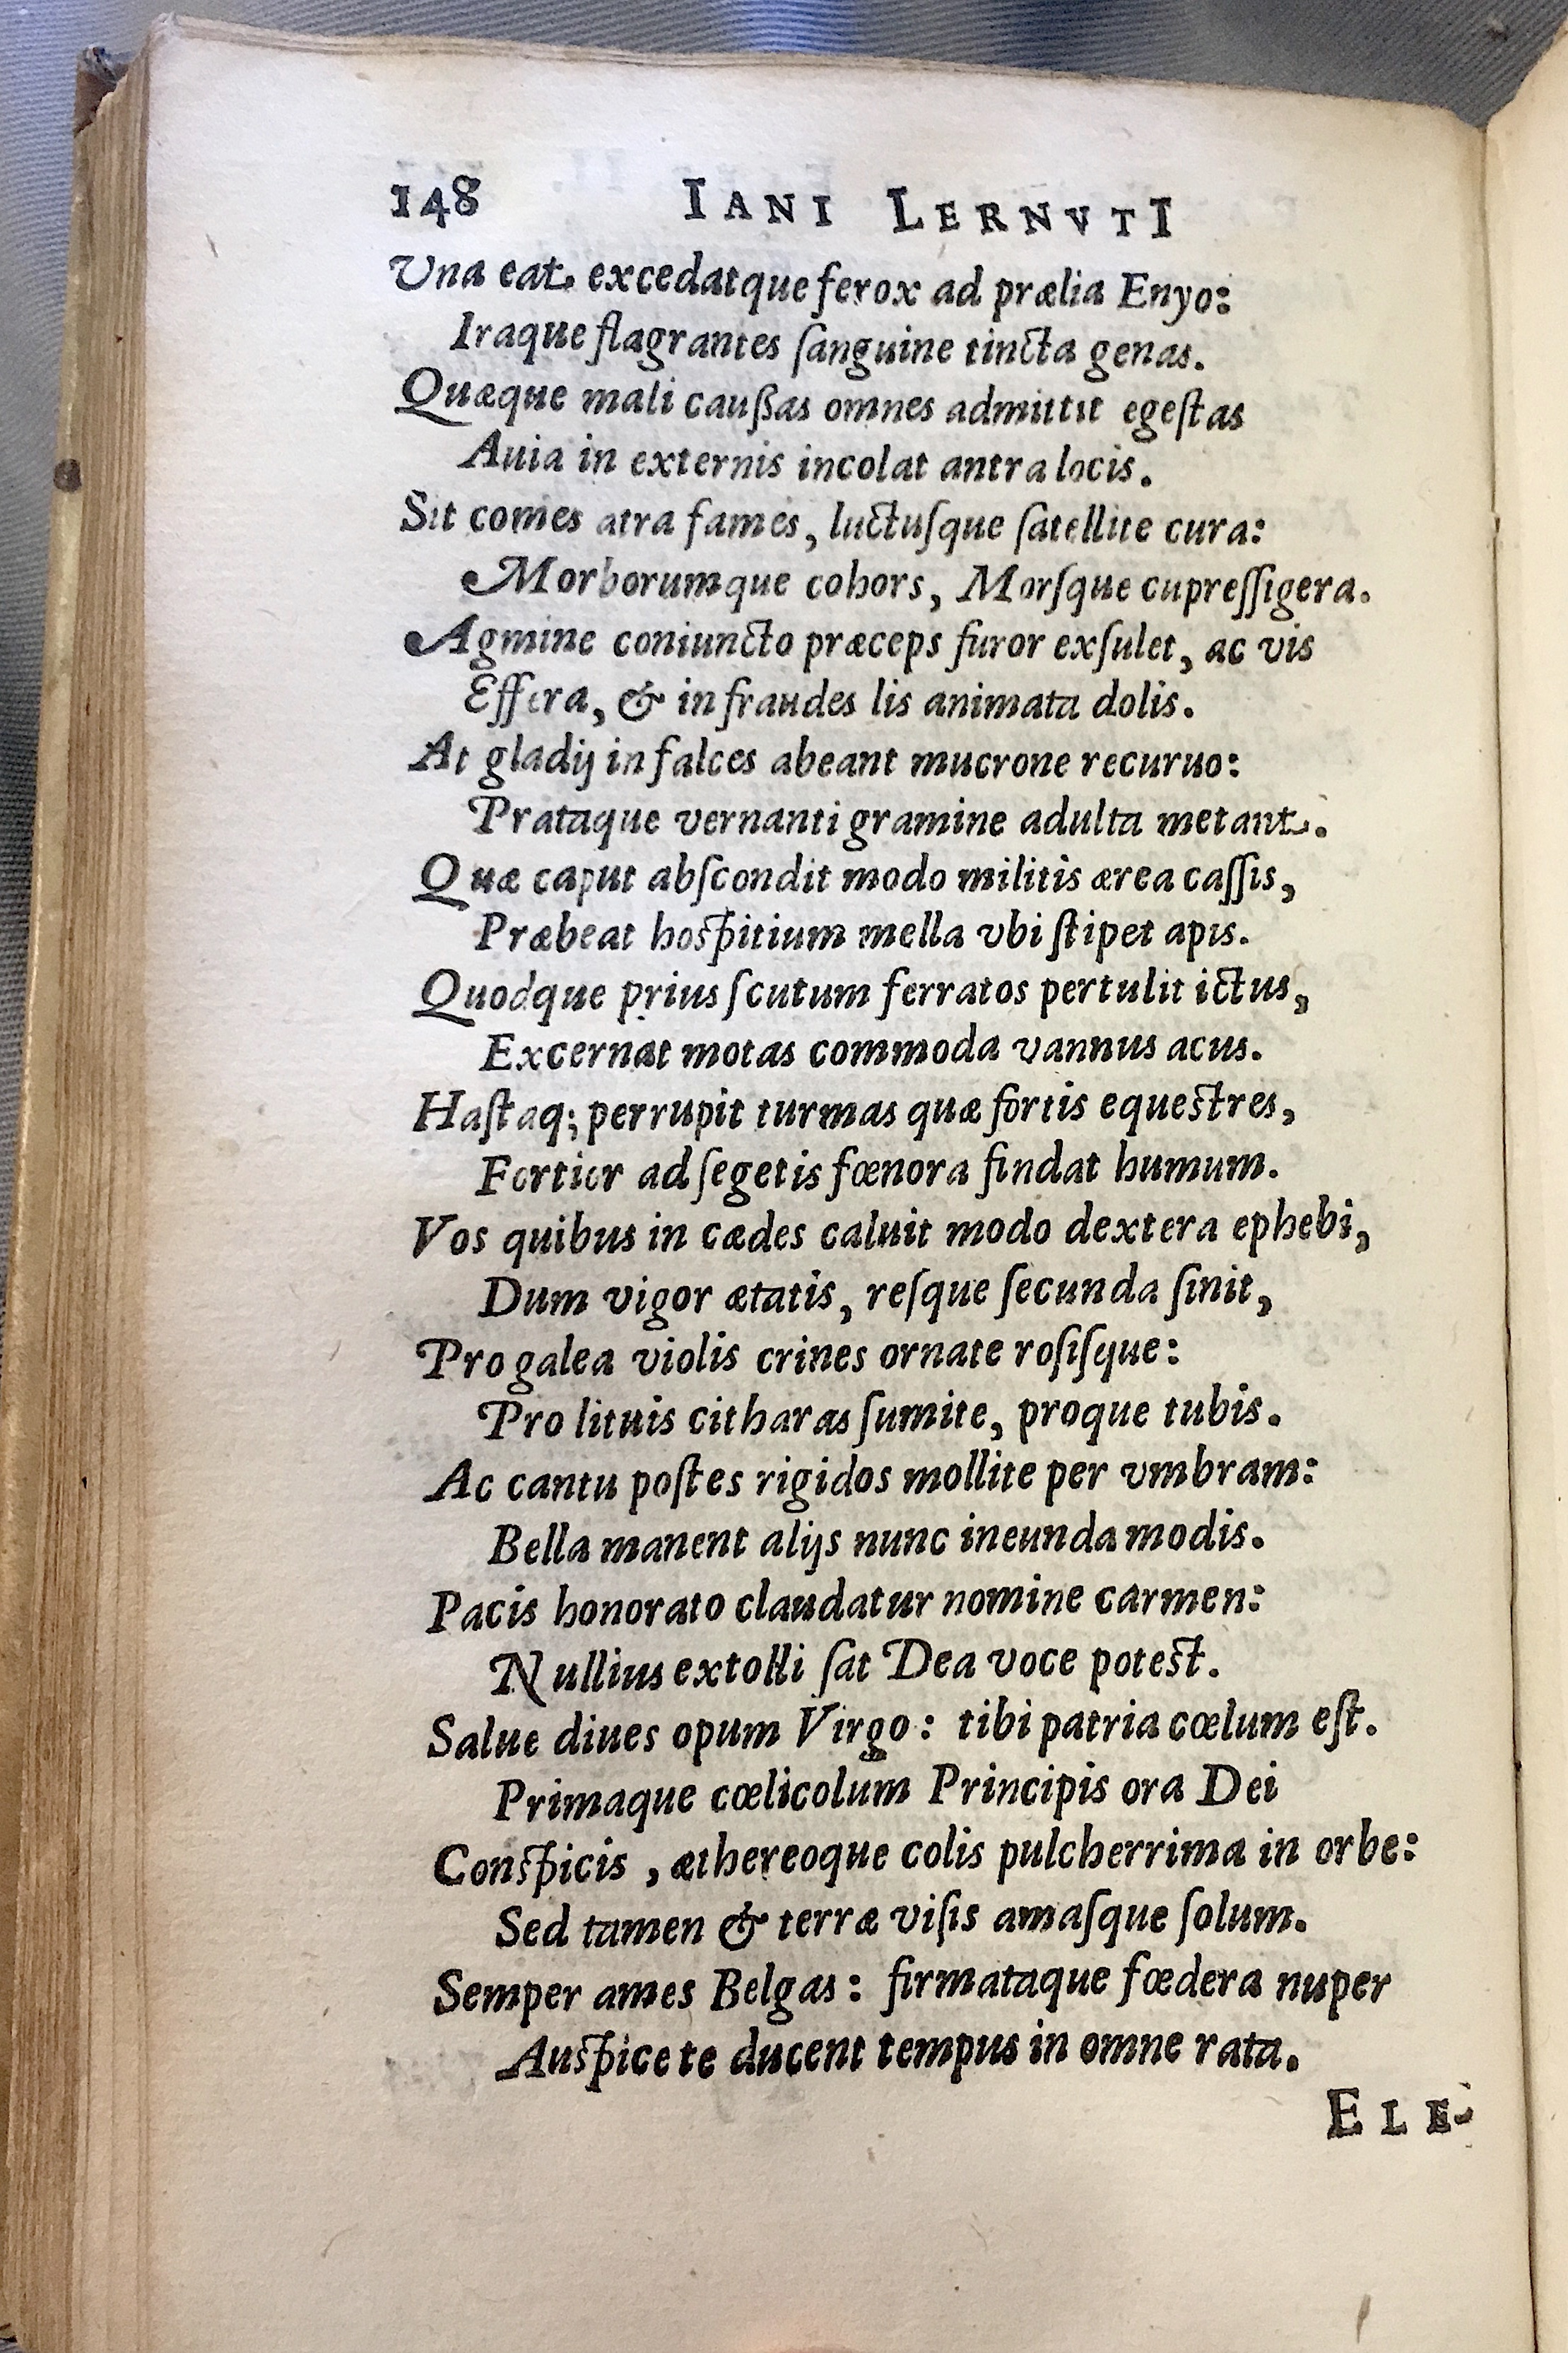 148 IANI LERNVTI
Una eat excedatque ferox ad prælia Enyo:
Iraque flagrantes ſanguine tincta genas.
Quæque mali cauſsas omnes admittit egeſtas
Auia in externis incolat antra locis.
Sit comes atra fames, luctuſque ſatellite cura:
Morborumque cohors, Morſque cupreſſigera.
Agmine coniuncto præceps furor exſulet, ac vis
Effera, & in fraudes lis animata dolis.
At gladij in falces abeant mucrone recuruo:
Prataque vernanti gramine adulta metant.
Quæ caput abſcondit modo militis ærea caſſis,
Præbeat hoſpitium mella vbi ſtipet apis.
Quodque prius ſcutum ferratos pertulit ictus,
Excernat motas commoda vannus acus.
Haſtaq; perrupit turmas quæ fortis equeſtres,
Fortior ad ſegetis fœnora findat humum.
Vos quibus in cædes caluit modo dextera ephebi,
Dum vigor ætatis, reſque ſecunda ſinit,
Pro galea violis crines ornate roſiſque:
Pro lituis citharas ſumite, proque tubis.
Ac cantu poſtes rigidos mollite per vmbram:
Bella manent alijs nunc ineunda modis.
Pacis honorato claudatur nomine carmen:
Nullius extolli ſat Dea voce poteſt.
Salue diues opum Virgo: tibi patria cœlum eſt.
Primaque cœlicolum Principis ora Dei
Conſpicis, æthereoque colis pulcherrima in orbe:
Sed tamen & terræ viſis amaſque ſolum.
Semper ames Belgas: firmataque fœdera nuper
Auſpice te ducent tempus in omne rata.
ELE-